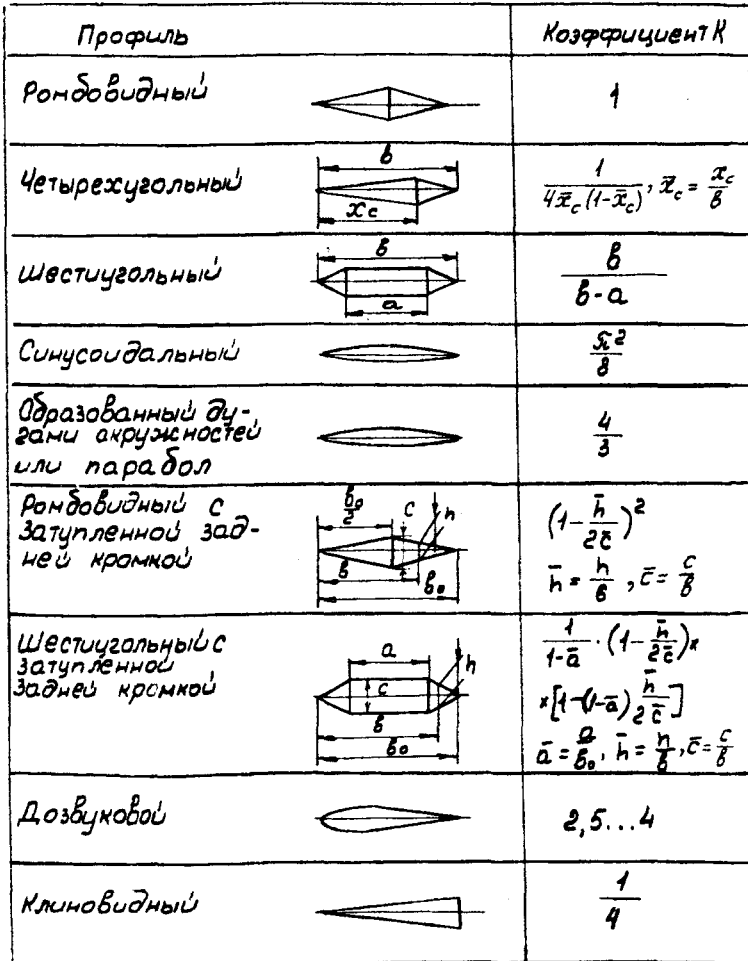 Профиль Коэффициент К
Ромбовидный 1
Четырехугольный в x_c 1/(4x̄_c(1-x̄_c)), x̄_c = x_c/в
Шестиугольный в a в/(в-a)
Синусоидальный π²/8
Образованный ду-
гами окружностей
или парабол 4/3
Ромбовидный с
затупленной зад-
ней кромкой
в₀/2 c h
в в₀
(1-h̄/2c̄)²
h̄ = h/в, c̄ = c/в
Шестиугольный с
затупленной
задней кромкой
a h
c
в
в₀
1/(1-ā) · (1-h̄/2c̄)×
×[1-(1-ā) h̄/2c̄]
ā = a/в₀, h̄ = h/в, c̄ = c/в
Дозвуковой 2,5...4
Клиновидный 1/4